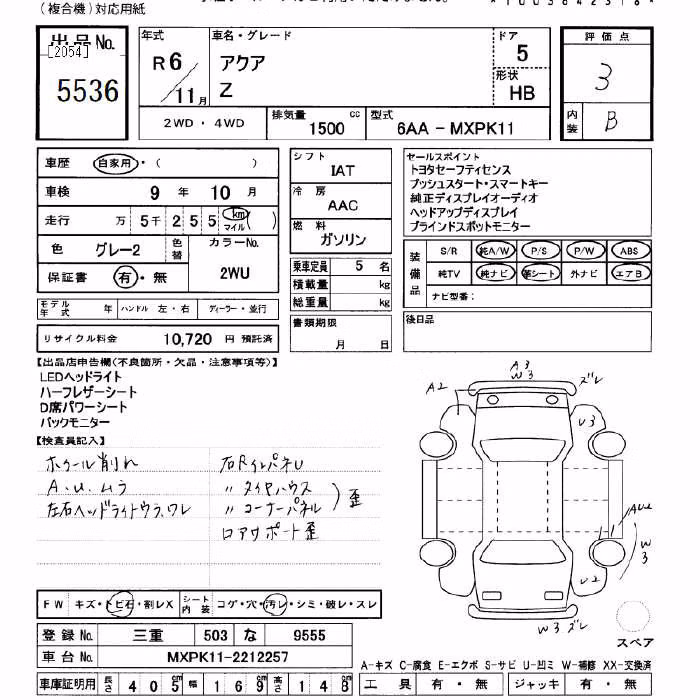 (複合機)対応用紙
出品No.
[2054]
5536
年式
R6/11月
車名・グレード
アクア
Z
ドア
5
形状
HB
評価点
3
内装
B
2WD・4WD
排気量
1500 cc
型式
6AA-MXPK11
車歴 自家用・( )
車検 9年 10月
走行 万 5千 2 5 5 km マイル ( )
色 グレー2 色替 カラーNo.
2WU
保証書 有・無
モデル年式 年 ハンドル 左・右 ディーラー・並行
リサイクル料金 10,720 円 預託済
シフト
IAT
冷房
AAC
燃料
ガソリン
乗車定員 5 名
積載量 kg
総重量 kg
書類期限
月 日
セールスポイント
トヨタセーフティセンス
プッシュスタート・スマートキー
純正ディスプレイオーディオ
ヘッドアップディスプレイ
ブラインドスポットモニター
装備品
S/R 純A/W P/S P/W ABS
純TV 純ナビ 革シート 外ナビ エアB
ナビ型番:
後日品
【出品店申告欄(不良箇所・欠品・注意事項等)】
LEDヘッドライト
ハーフレザーシート
D席パワーシート
バックモニター
【検査員記入】
ホイール削れ
A.U.ムラ
左右ヘッドライトウラ.ワレ
右RインパネU
〃 タイヤハウス
〃 コーナーパネル
) 歪
ロアサポート歪
A3
W3
ズレ
A2
U3
AU2
W3
U2
W3 ズレ
スペア
FW キズ・トビ石・割レX シート内装 コゲ・穴・汚レ・シミ・破レ・スレ
登録No. 三重 503 な 9555
車台No. MXPK11-2212257
車庫証明用 長さ 405 幅 169 高さ 148
A-キズ C-腐食 E-エクボ S-サビ U-凹ミ W-補修 XX-交換済
工具 有・無 ジャッキ 有・無